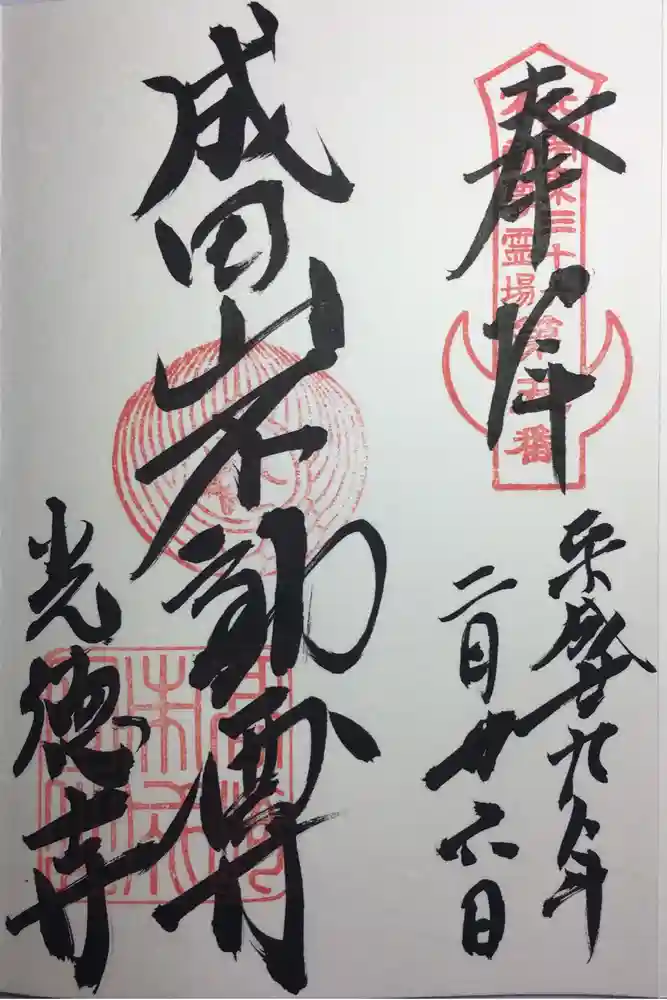 奉拝
三十
霊場
番
平成廿九年
二月廿六日
成田山不動尊
光徳寺